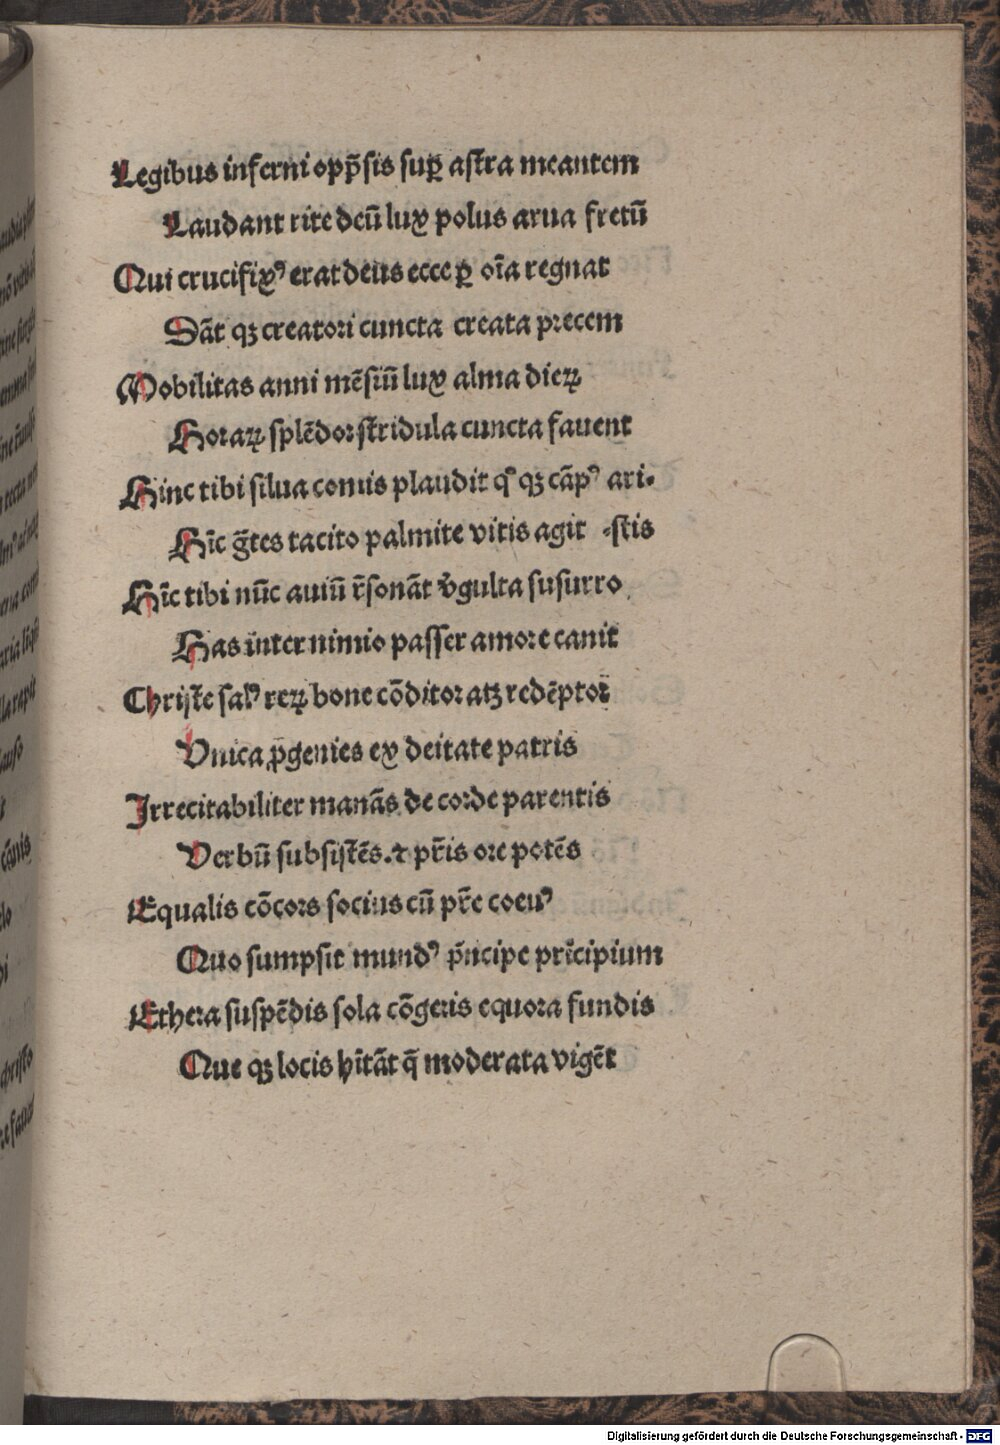 Legibus inferni opp̄sis suꝑ astra meantem
Laudant rite deū lux polus arua fretū
Qui crucifixꝰ erat deus ecce ꝑ oīa regnat
Dāt qꝫ creatori cuncta creata precem
Mobilitas anni mēsiū lux alma dieꝝ
Horaꝝ splēdor stridula cuncta fauent
Hinc tibi silua comis plaudit qͦ qꝫ cāpꝰ ari-
Hīc ḡtes tacito palmite vitis agit -stis
Hīc tibi nūc auiū r̄sonāt v̓gulta susurro
Has inter nimio passer amore canit
Christe salꝰ reꝝ bone cōditor atqꝫ redēptor
Vnica ꝓgenies ex deitate patris
Irrecitabiliter manās de corde parentis
Verbū subsistēs ⁊ pr̄is ore potēs
Equalis cōcors socius cū pr̄e coeuꝰ
Quo sumpsit mundꝰ p̓ncipe prīcipium
Ethera suspēdis sola cōgeris equora fundis
Que qꝫ locis hītāt q̄ moderata vigēt
Digitalisierung gefördert durch die Deutsche Forschungsgemeinschaft - DFG